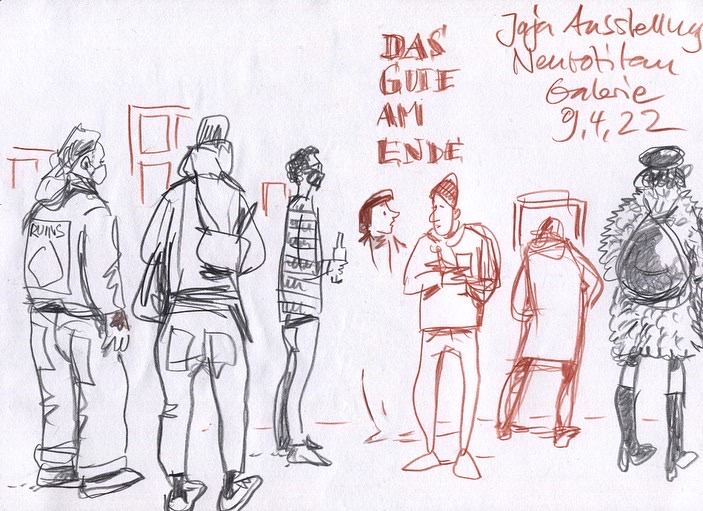 DAS
GUTE
AM
ENDE
Jaja Ausstellung
Neurotitan
Galerie
9,4,22
RUINS